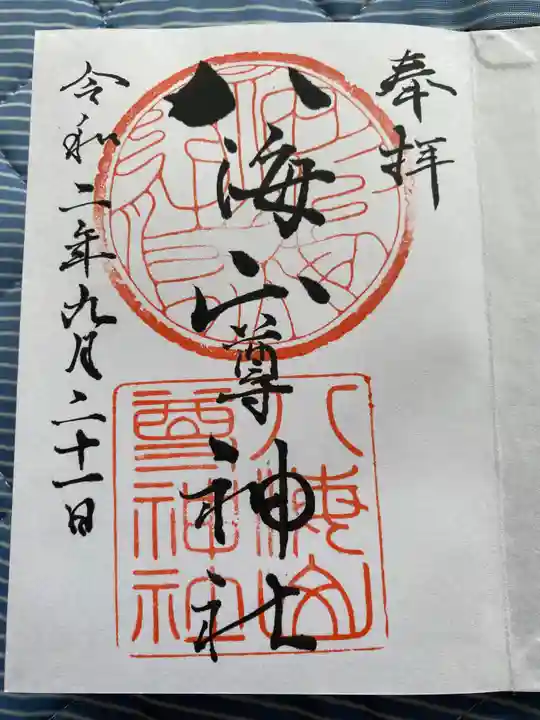 奉拝
八海山尊神社
令和二年九月二十一日
八海山
尊神社